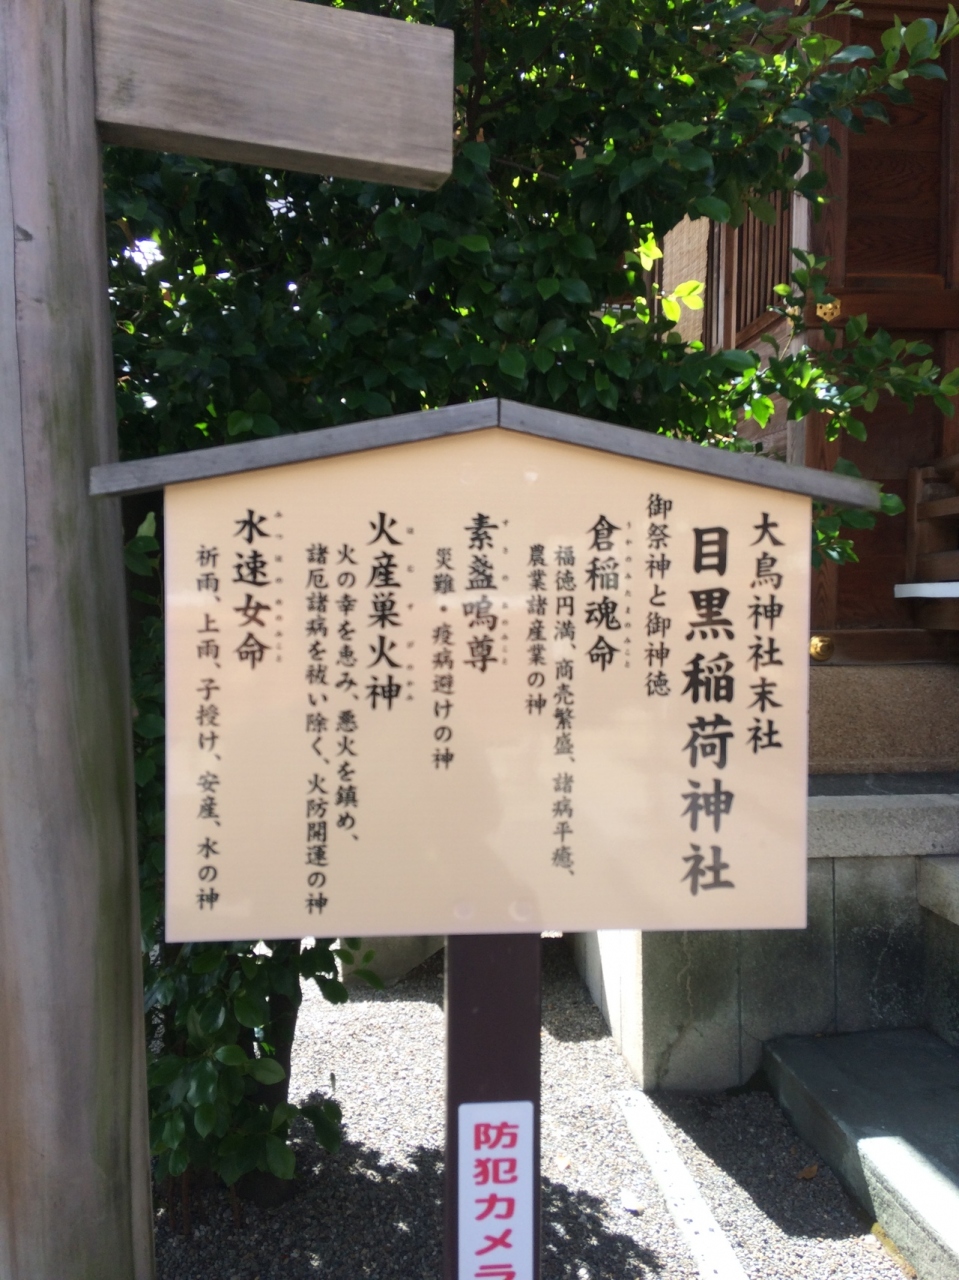 大鳥神社末社
目黒稲荷神社
御祭神と御神徳
倉稲魂命
福徳円満、商売繁盛、諸病平癒、
農業諸産業の神
素盞嗚尊
災難・疫病避けの神
火産巣火神
火の幸を恵み、悪火を鎮め、
諸厄諸病を祓い除く、火防開運の神
水速女命
祈雨、上雨、子授け、安産、水の神
防犯カメラ